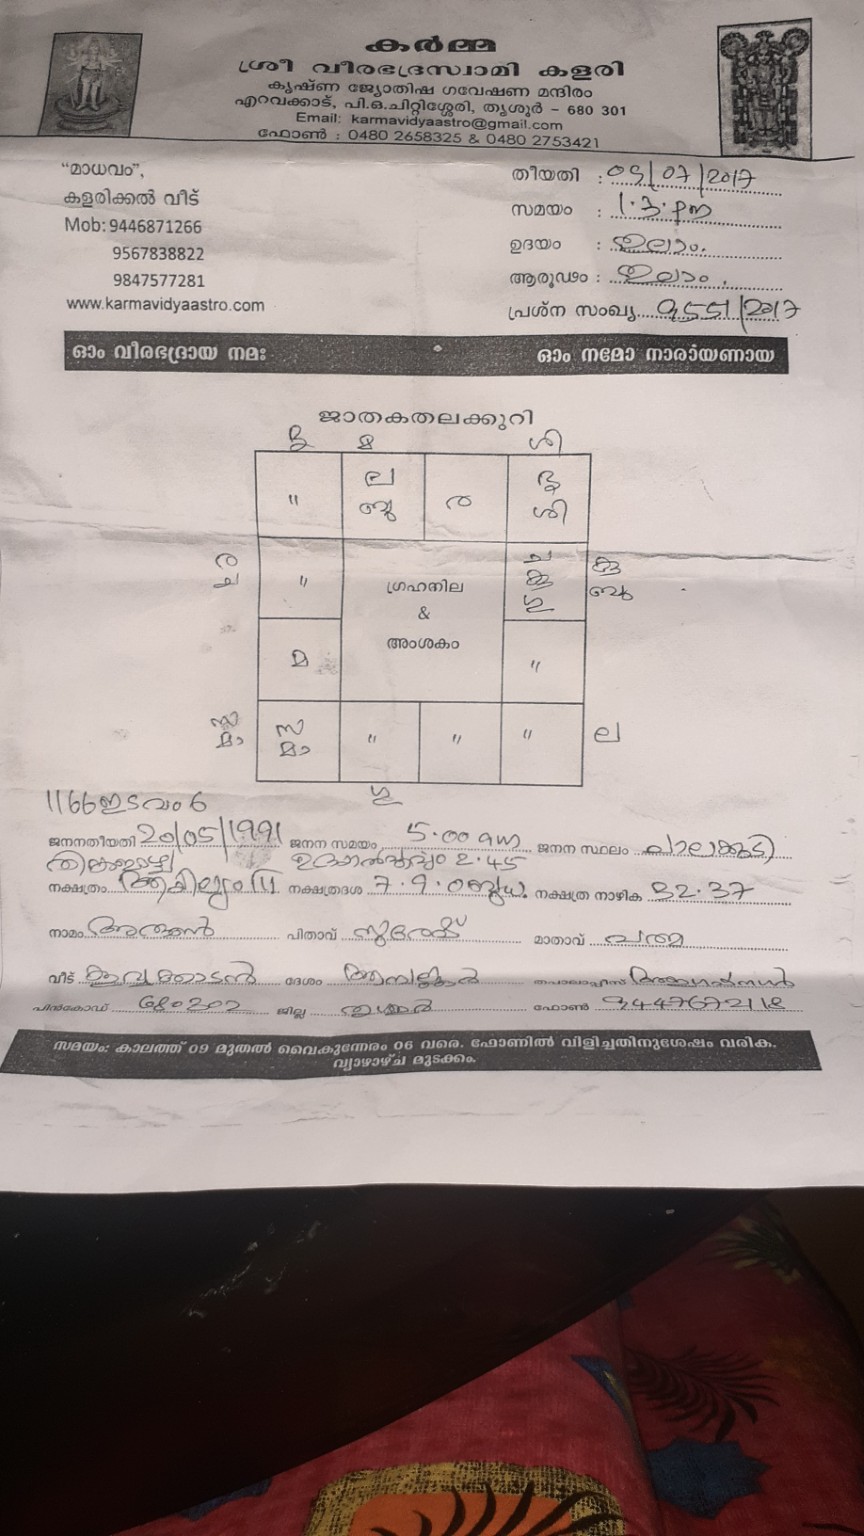 കർമ്മ
ശ്രീ വീരഭദ്രസ്വാമി കളരി
കൃഷ്ണ ജ്യോതിഷ ഗവേഷണ മന്ദിരം
എറവക്കാട്, പി.ഒ.ചിറ്റിശ്ശേരി, തൃശൂർ - 680 301
Email: karmavidyaastro@gmail.com
ഫോൺ : 0480 2658325 & 0480 2753421
"മാധവം",
കളരിക്കൽ വീട്
Mob: 9446871266
9567838822
9847577281
www.karmavidyaastro.com
തീയതി : 05/07/2017
സമയം : 1.3.pm
ഉദയം :
ആരൂഢം :
പ്രശ്ന സംഖ്യ 9551/2017
ഓം വീരഭദ്രായ നമഃ
ഓം നമോ നാരായണായ
ജാതകതലക്കുറി
മ ശി
" ല ര ശി
ബു
ര " ച കു
ച ഗു ബു
ഗ്രഹനില
&
അംശകം
മ "
സ സ " " " ല
മാ മാ
ഗു
1166 ഇടവം 6
ജനനതീയതി 20/05/1991 ജനന സമയം 5.00 am ജനന സ്ഥലം ചാലക്കുടി
തിങ്കളാഴ്ച 2.45
നക്ഷത്രം ആയില്യം നക്ഷത്രദശ 7.9.0 നക്ഷത്ര നാഴിക 32.37
നാമം പിതാവ് സുരേഷ് മാതാവ്
വീട് ദേശം പോസ്റ്റാഫീസ്
പിൻകോഡ് 680202 ജില്ല തൃശൂർ ഫോൺ
സമയം: കാലത്ത് 09 മുതൽ വൈകുന്നേരം 06 വരെ. ഫോണിൽ വിളിച്ചതിനുശേഷം വരിക.
വ്യാഴാഴ്ച മുടക്കം.